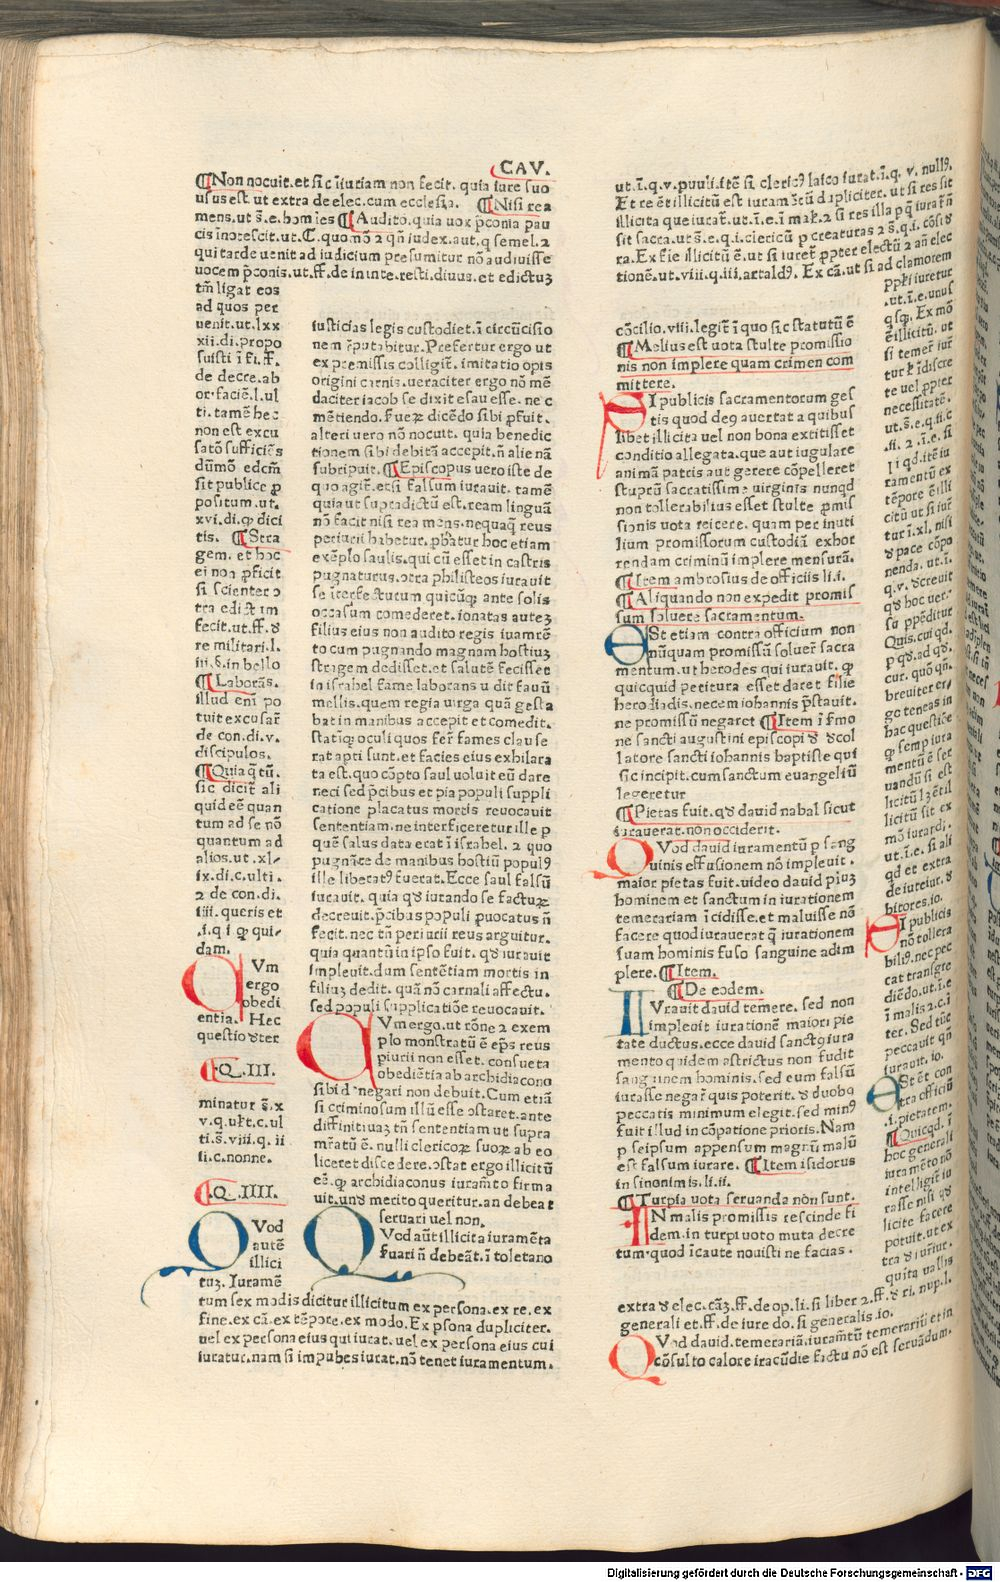 CAV.
¶Non nocuit.et sic īiuriam non fecit. quia iure suo
usus est. ut extra de elec.cum ecclesia. ¶Nisi rea
mens.ut s̄.e.homīes ¶Audito.quia uox p̄conia pau
cis īnotescit.ut.C.quomō 2 qn̄ iudex.aut.q semel.2
qui tarde uenit ad iudicium presumitur nō audiuisse
uocem p̄conis.ut.ff.de in inte.resti.diuus.et edictuʒ
tm̄ ligat eos
ad quos per
uenit.ut.lxx
xii.di.propo
suisti ī fi.ff.
de decre.ab
or.faciē.l.ul
ti. tamē hec
non est excu
satō sufficiēs
dūmō edcm̄
sit publice ꝓ
positum.ut.
xvi.di.ꝙ dici
tis. ¶Stra
gem. et hoc
ei non ꝓficit
si scienter ↄ
tra edict im
fecit.ut.ff.
re militari.l.
iii.§.in bello
¶Laborās.
illud enī po
tuit excusar̄
de con.di.v.
discipulos.
¶Quia q̄tū.
sic dicit̄ ali
quid eē quan
tum ad se nō
quantum ad
alios.ut.xl-
ix.di.c.ulti.
2 de con.di.
iiii. queris et
.i.q i ꝙ qui-
dam.
QVm
ergo
obedi
entia. Hec
questio
¶.Q.III.
minatur s̄.x
v.q.ult̄.c.ul
ti.§.viii.q. ii
ii.c.nonne.
¶.Q.IIII.
QVod
autē
illici
tuʒ. Iuramē
tum sex modis dicitur illicitum ex persona.ex re.ex
fine.ex cā.ex tēpore.ex modo.Ex p̄sona dupliciter.
uel ex persona eius qui iurat.uel ex persona eius cui
iuratur.nam si impubes iurat.nō tenet iuramentum.
iusticias legis custodiet.ī circūcisio
nem r̄putabitur.Prefertur ergo ut
ex premissis colligit̄. imitatio opis
origini carnis.ueraciter ergo nō mē
daciter iacob se dixit esau esse.ne c
mētiendo.fueꝝ dicēdo sibi ꝓfuit.
alteri uero nō nocuit. quia benedic
tionem sibi debitā accepit.n̄ alienā
subripuit. ¶Episcopus uero iste de
quo agit̄.etsi falsum iurauit. tamē
quia ut supradictū est.ream linguā
nō facit nisi rea mens.nequaq̄ reus
periurii habetur.ꝓbatur hoc etiam
exēplo saulis.qui cū esset in castris
pugnaturus.ↄtra philisteos iurauit
se īterfecturum quicūqꝫ ante solis
occasum comederet.ionatas auteʒ
filius eius non audito regis iuramē
to cum pugnando magnam hostiuʒ
stragem dedisset.et salutē fecisset
in israhel fame laborans u dit fauū
mellis.quem regia uirga quā gesta
bat in manibus accepit et comedit.
statīqꝫ oculi quos fer̄ fames clause
rat apti sunt.et facies eius exhilara
ta est.quo cōpto saul uoluit eū dare
neci sed p̄cibus et pia populi suppli
catione placatus mortis reuocauit
sententiam.ne interficeretur ille p
quē salus data erat ī israhel. 2 quo
pugnāte de manibus hostiū popul9
ille liberat9 fuerat.Ecce saul falsū
iurauit. quia qd̵ iurando se factuꝝ
decreuit.p̄cibus populi ꝓuocatus n̄
fecit.nec tn̄ periurii reus arguitur.
quia quantū in ipso fuit. qd̵ iurauit
impleuit.dum sentētiam mortis in
filiuʒ dedit. quā nō carnali affectu.
sed populi supplicatiōe reuocauit.
QVm ergo.ut rōne 2 exem
plo monstratū ē ep̄s reus
piurii non esset. consueta
obediētia ab archidiacono
sibi d negari non debuit. Cum etiā
si criminosum illū esse ↄstaret.ante
diffinitiuaʒ tn̄ sententiam ut supra
mr̄atū ē. nulli clericoꝝ suoꝝ ab eo
liceret discedere.ↄstat ergo illicitū
eē.ꝙ archidiaconus iuram̄to firma
uit.und̵ merito queritur.an debeat
seruari uel non.
QVod aut̄ illicita iuramēta
ẜuari n̄ debeāt.ī toletano
ut.ī.q.v.puuli.itē si cleric9 laico iurat.ī.q. v. null9.
Et re ēt illicitū est iuram̄tū dupliciter. ut si res sit
illicita que iurat̄.ut.ī.e.ī mal̄.2 si res illa p q̄ iurat̄ n̄
sit sacra.ut s̄.e.q.i.clericū p creaturas 2 s̄.q.i. cōsid̵
ra.Ex fie illicitū ē.ut si iuret̄ ꝓpter electū 2 an elec
tionē.ut.viii.q.iii.artald9. Ex cā.ut si ad clamorem
cōcilio.viii.legit̄ ī quo sic statutū ē
¶Melius est uota stulte promissio
nis non implere quam crimen com
mittere.
SI publicis sacramentorum ges
tis quod de9 auertat a quibus
libet illicita uel non bona extitisset
conditio allegata.que aut iugulare
animā patris aut gerere cōpelleret
stuprū sacratissime uirginis nunqd
non tollerabilius esset stulte ꝓmis
sionis uota reicere. quam per inuti
lium promissorum custodiā exhor
rendam criminū implere mensurā.
¶Item ambrosius de officiis li.i.
¶Aliquando non expedit promis
sum soluere sacramentum.
ESt etiam contra officium non
nūquam promissū soluer̄ sacra
mentum.ut herodes qui iurauit. ꝙ
quicquid petitura esset daret filie
herodiadis.necem iohannis p̄stauit.
ne promissū negaret ¶Item ī ẜmo
ne sancti augustini episcopi d̵ d̵col
latore sancti iohannis baptiste qui
sic incipit.cum sanctum euangeliū
legeretur
¶Pietas fuit.qd̵ dauid nabal sicut
iurauerat.non occiderit.
QVod dauid iuramentū p sang
uinis effusionem nō impleuit.
maior pietas fuit.uideo dauid piuʒ
hominem et sanctum in iurationem
temerariam īcidisse.et maluisse nō
facere quod iurauerat q̄ iurationem
suam hominis fuso sanguine adim
plere. ¶Item.
¶De eodem.
IVrauit dauid temere. sed non
impleuit iurationē maiori pie
tate ductus.ecce dauid sanct9 iura
mento quidem astrictus non fudit
sanguinem hominis.sed eum falsū
iurasse negar̄ quis poterit. d̵ duobꝫ
peccatis minimum elegit.sed min9
fuit illud in cōpatione prioris.Nam
p seipsum appensum magnū malū
est falsum iurare. ¶Item isidorus
in sinonimis.li.ii.
¶Turpia uota seruanda non sunt.
IN malis promissis rescinde fi
dem.in turpi uoto muta decre
tum.quod īcaute nouisti ne facias.
ꝓpl̄i iuretur
.ut.ī.e.unus
qsqꝫ. Ex mō
ē illicitū. ut
si temer̄ iur̄
tur l̄ īdiscre
te uel ꝓpter
necessitatē.
ut.s̄.e.q.ii.c
.ii. 2 .ī.e. si
ramentū ex
tēpore ē illi
citū ut si iur̄
tur ī.xl. nisi
d̵ pace cōpo
nenda. ut.ī.
q.v.
qd̵ hoc uer.
Quis.cui.qd.
p qd̵.ad qd̵.
cur. quō.qn̄.
breuiter er-
go teneas in
hac questiōe
ꝙ semp iura
mentū ē ser
uandū si est
licitū
licitū sit ex
mō iurādi.
ut.ī.e. si ali
qd et extra
de iureiur. d̵
bitores.io.
SI publicis
nō tollera
bili9. nec pec
cat transgre
diēdo.ut.ī.e
ī malis 2.c.ī
ter. Sed tūc
peccauit qn̄
iurauit. io.
ESt ēt con
tra officiū
.i.pietatem.
¶Quicqd. ī
hoc generali
iuramēto nō
intelligit̄ iu
rasse nisi qd̵
licite facere
potuit.ut ex
tra d̵ iureiur.
quita uallis
extra d̵ elec. cāʒ.ff.de op.li.si liber 2.ff.d̵ ri. nup.l.
generali et.ff.de iure do.si generalis.io.
QVod dauid.temerariā.iuram̄tū temerariū et in
cōsulto calore iracūdie factū nō est seruādum.
Digitalisierung gefördert durch die Deutsche Forschungsgemeinschaft - DFG